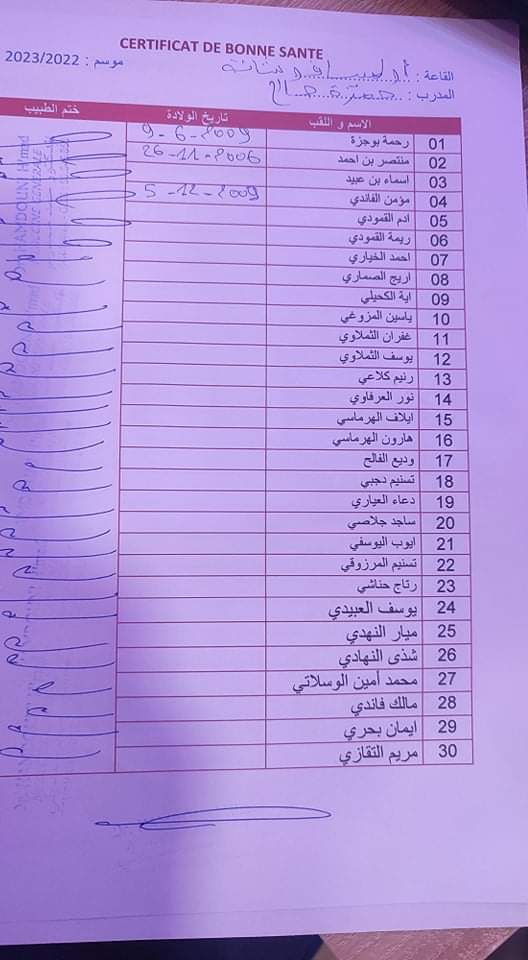 CERTIFICAT DE BONNE SANTE
موسم : 2023/2022
القاعة :
المدرب :
الاسم و اللقب تاريخ الولادة ختم الطبيب
01 رحمة بوجزة 9-6-2009
02 منتصر بن احمد 26-11-2006
03 اسماء بن عبيد
04 مؤمن الفاندي 5-12-2009
05 ادم القمودي
06 ريمة القمودي
07 احمد الخياري
08 اريج الصماري
09 اية الكحيلي
10 ياسين المزوغي
11 غفران الثملاوي
12 يوسف الثملاوي
13 رنيم كلاعي
14 نور العرفاوي
15 ايلاف الهرماسي
16 هارون الهرماسي
17 وديع الفالح
18 تسنيم دجبي
19 دعاء العياري
20 ساجد جلاصي
21 ايوب اليوسفي
22 تسنيم المرزوقي
23 رتاج حناشي
24 يوسف العبيدي
25 ميار النهدي
26 شذى النهادي
27 محمد أمين الوسلاتي
28 مالك فاندي
29 ايمان بحري
30 مريم التقازي